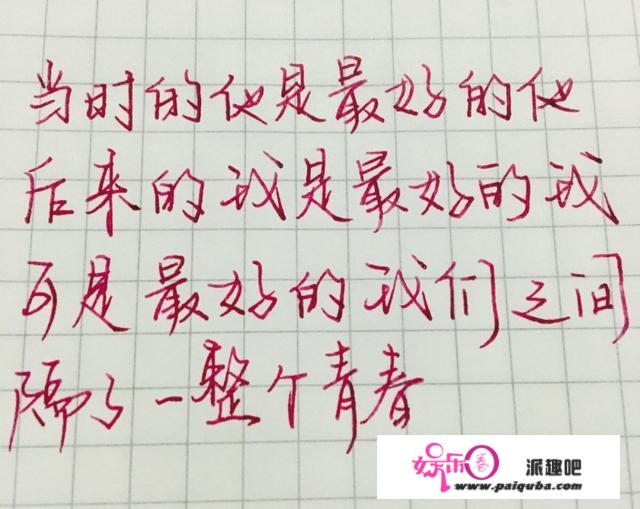 当时的他是最好的他
后来的我是最好的我
可是最好的我们之间
隔了一整个青春
娱乐圈 派趣吧
www.paiquba.com